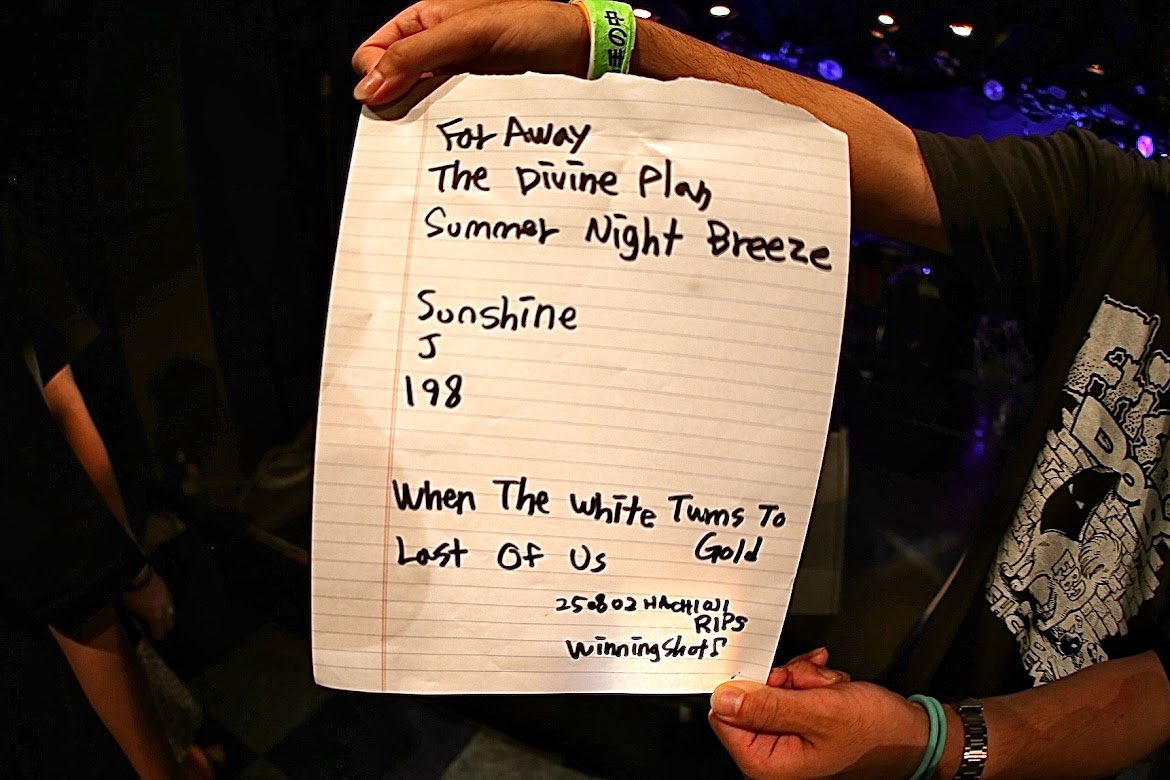 Far Away
The Divine Plan
Summer Night Breeze
Sunshine
J
198
When The White Turns To
Gold
Last Of Us
250802 HACHIOJI
RIPS
Winningshot♪